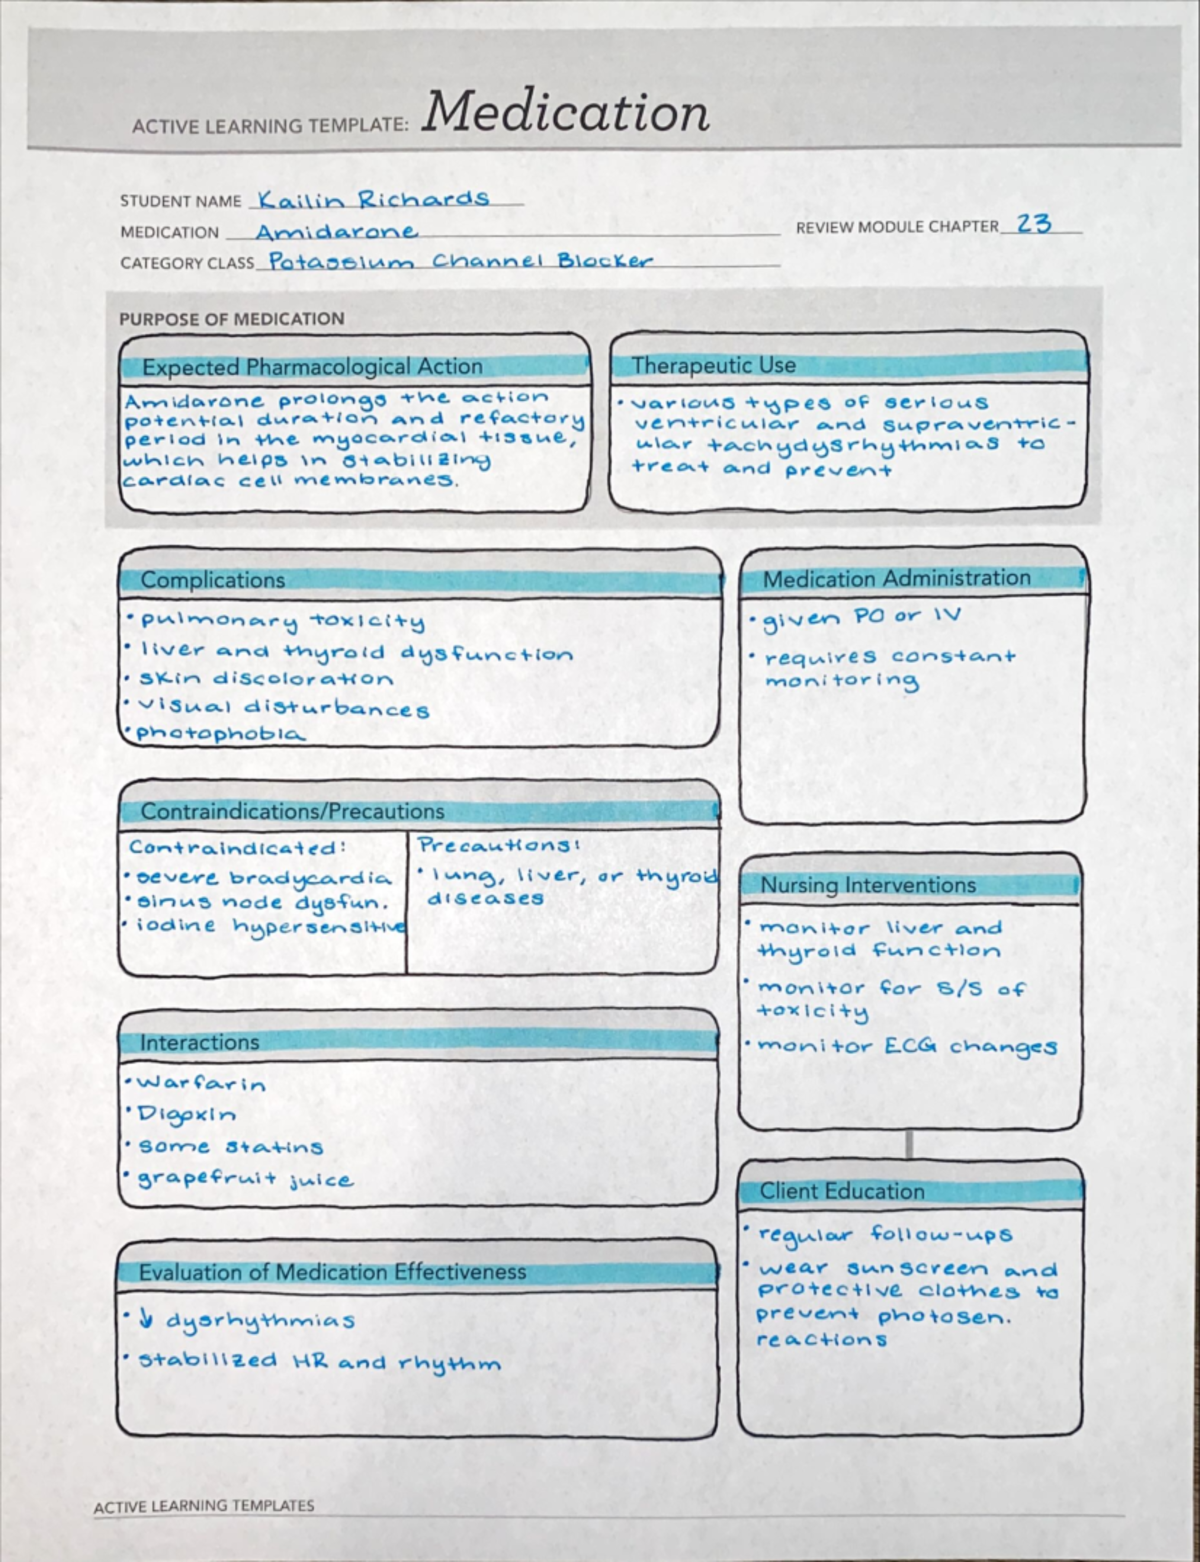 ACTIVE LEARNING TEMPLATE: Medication
STUDENT NAME Kailin Richards
MEDICATION Amidarone
REVIEW MODULE CHAPTER 23
CATEGORY CLASS Potassium Channel Blocker
PURPOSE OF MEDICATION
Expected Pharmacological Action
Amidarone prolongs the action
potential duration and refactory
period in the myocardial tissue,
which helps in stabilizing
cardiac cell membranes.
Therapeutic Use
• various types of serious
ventricular and supraventric-
ular tachydysrhythmias to
treat and prevent
Complications
• pulmonary toxicity
• liver and thyroid dysfunction
• skin discoloration
• visual disturbances
• photophobia
Medication Administration
• given PO or IV
• requires constant
monitoring
Contraindications/Precautions
Contraindicated:
• severe bradycardia
• sinus node dysfun.
• iodine hypersensitive
Precautions:
• lung, liver, or thyroid
diseases
Nursing Interventions
• monitor liver and
thyroid function
• monitor for S/S of
toxicity
• monitor ECG changes
Interactions
• Warfarin
• Digoxin
• some statins
• grapefruit juice
Client Education
• regular follow-ups
• wear sunscreen and
protective clothes to
prevent photosen.
reactions
Evaluation of Medication Effectiveness
• ↓ dysrhythmias
• stabilized HR and rhythm
ACTIVE LEARNING TEMPLATES